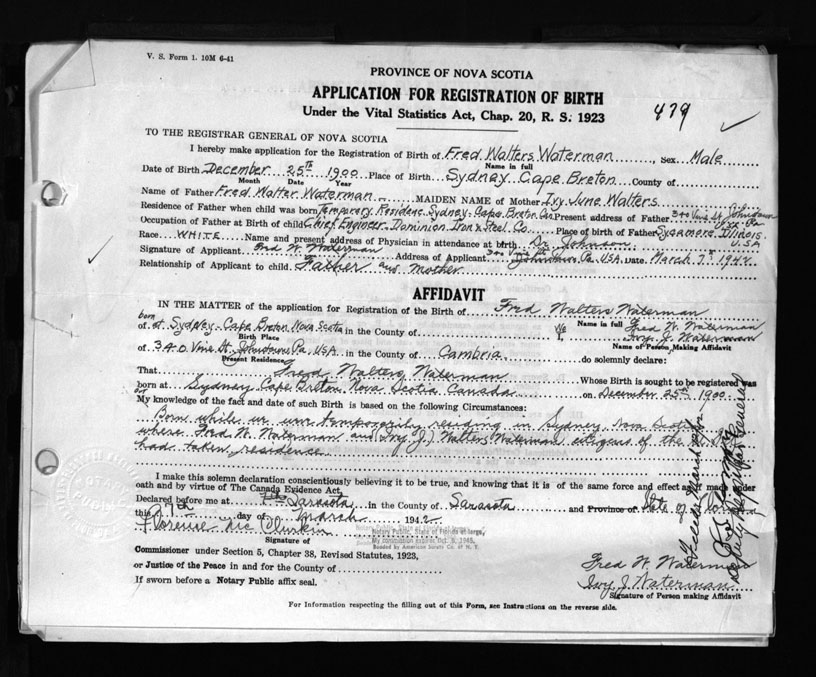 V. S. Form 1. 10M 6-41
PROVINCE OF NOVA SCOTIA
APPLICATION FOR REGISTRATION OF BIRTH
Under the Vital Statistics Act, Chap. 20, R. S. 1923
479
TO THE REGISTRAR GENERAL OF NOVA SCOTIA
I hereby make application for the Registration of Birth of Fred Walters Waterman, Sex Male
Name in full
Date of Birth December 25th 1900 Place of Birth Sydney Cape Breton County of
Month Date Year
Name of Father Fred Walter Waterman MAIDEN NAME of Mother Ivy June Walters
Residence of Father when child was born Temporary Residence Sydney-Cape Breton Co. Present address of Father 340 Vine St Johnstown Pa
Occupation of Father at Birth of child Chief Engineer Dominion Iron & Steel Co. Place of birth of Father Sycamore Illinois. USA
Race WHITE Name and present address of Physician in attendance at birth Dr Johnson
Signature of Applicant Fred W. Waterman Address of Applicant 340 Vine St Johnstown, Pa. USA. Date March 7th 1942
Relationship of Applicant to child Father and Mother
AFFIDAVIT
IN THE MATTER of the application for Registration of the Birth of Fred Walters Waterman
Name in full
born
of at Sydney-Cape Breton Nova Scotia in the County of We I, Fred W. Waterman Ivy J. Waterman
Birth Place Name of Person Making Affidavit
of 340 Vine St. Johnstown Pa. USA in the County of Cambria do solemnly declare:
Present Residence
That Fred Walters Waterman Whose Birth is sought to be registered was
born at Sydney Cape Breton Nova Scotia Canada on December 25th 1900
My knowledge of the fact and date of such Birth is based on the following Circumstances:
Born while we were temporarily residing in Sydney Nova Scotia
where Fred W. Waterman and Ivy J. Walters Waterman citizens of the U.S.
had taken residence
I make this solemn declaration conscientiously believing it to be true, and knowing that it is of the same force and effect as if made under
oath and by virtue of The Canada Evidence Act.
Declared before me at Sarasota in the County of Sarasota and Province of State of Florida
this 27th day of March 1942
Florence Mc Clurkin
Notary Public, State of Florida at large,
My commission expires Oct. 5, 1945.
Bonded by American Surety Co. of N. Y.
Signature of
Commissioner under Section 5, Chapter 38, Revised Statutes, 1923,
or Justice of the Peace in and for the County of
If sworn before a Notary Public affix seal.
Fred W. Waterman
Ivy J. Waterman
Signature of Person making Affidavit
Deputy Registrar General
For Information respecting the filling out of this Form, see Instructions on the reverse side.